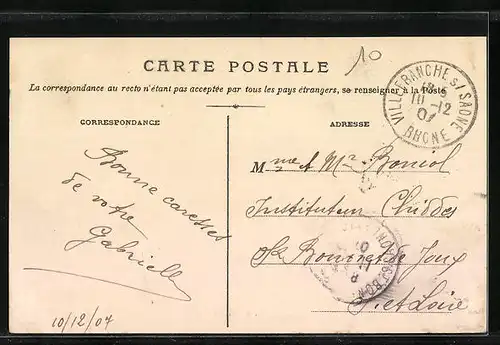 10
CARTE POSTALE
La correspondance au recto n'étant pas acceptée par tous les pays étrangers, se renseigner à la Poste
VILLEFRANCHE s/ SAONE
10 -12
07
RHONE
CORRESPONDANCE
ADRESSE
Bonne caresses
de votre
Gabrielle
10/12/07
Mme et Mr
Instituteur Chiddes
de Joux
S. et Loire